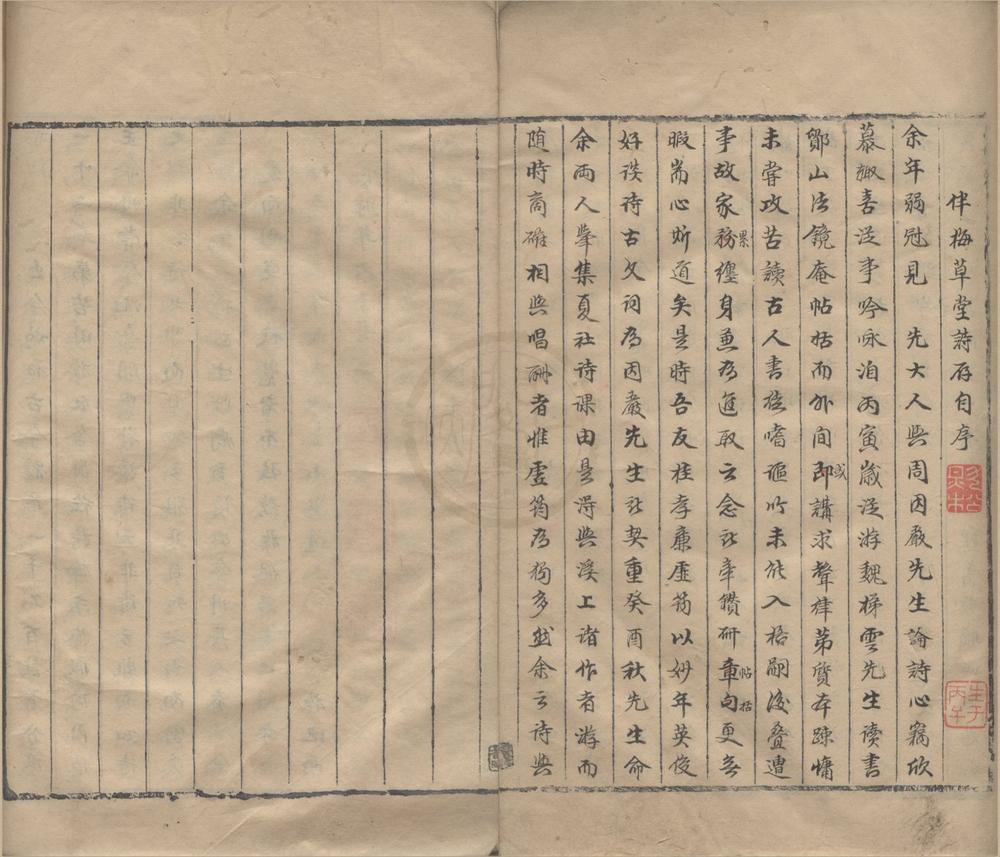 伴梅草堂詩存自序
余年弱冠見 先大人與周因嚴先生論詩心竊欣
慕輙喜從事吟咏洎丙寅歲從游魏梯雲先生讀書
鄮山法鏡庵帖括而外間即或講求聲律第質本踈慵
未嘗攻苦讀古人書雖嗜謳吟未能入格嗣後疊遭
事故家務累纏身兼為進取之念所牽鑽研章句帖括更無
暇耑心斯道矣是時吾友桂孝廉虛筠以妙年英俊
好談詩古文詞為因嚴先生所契重癸酉秋先生命
余兩人肇集夏社詩課由是得與溪上諸作者游而
随時商確相與唱酬者惟虛筠為獨多然余之詩與
彭松
生于丙子